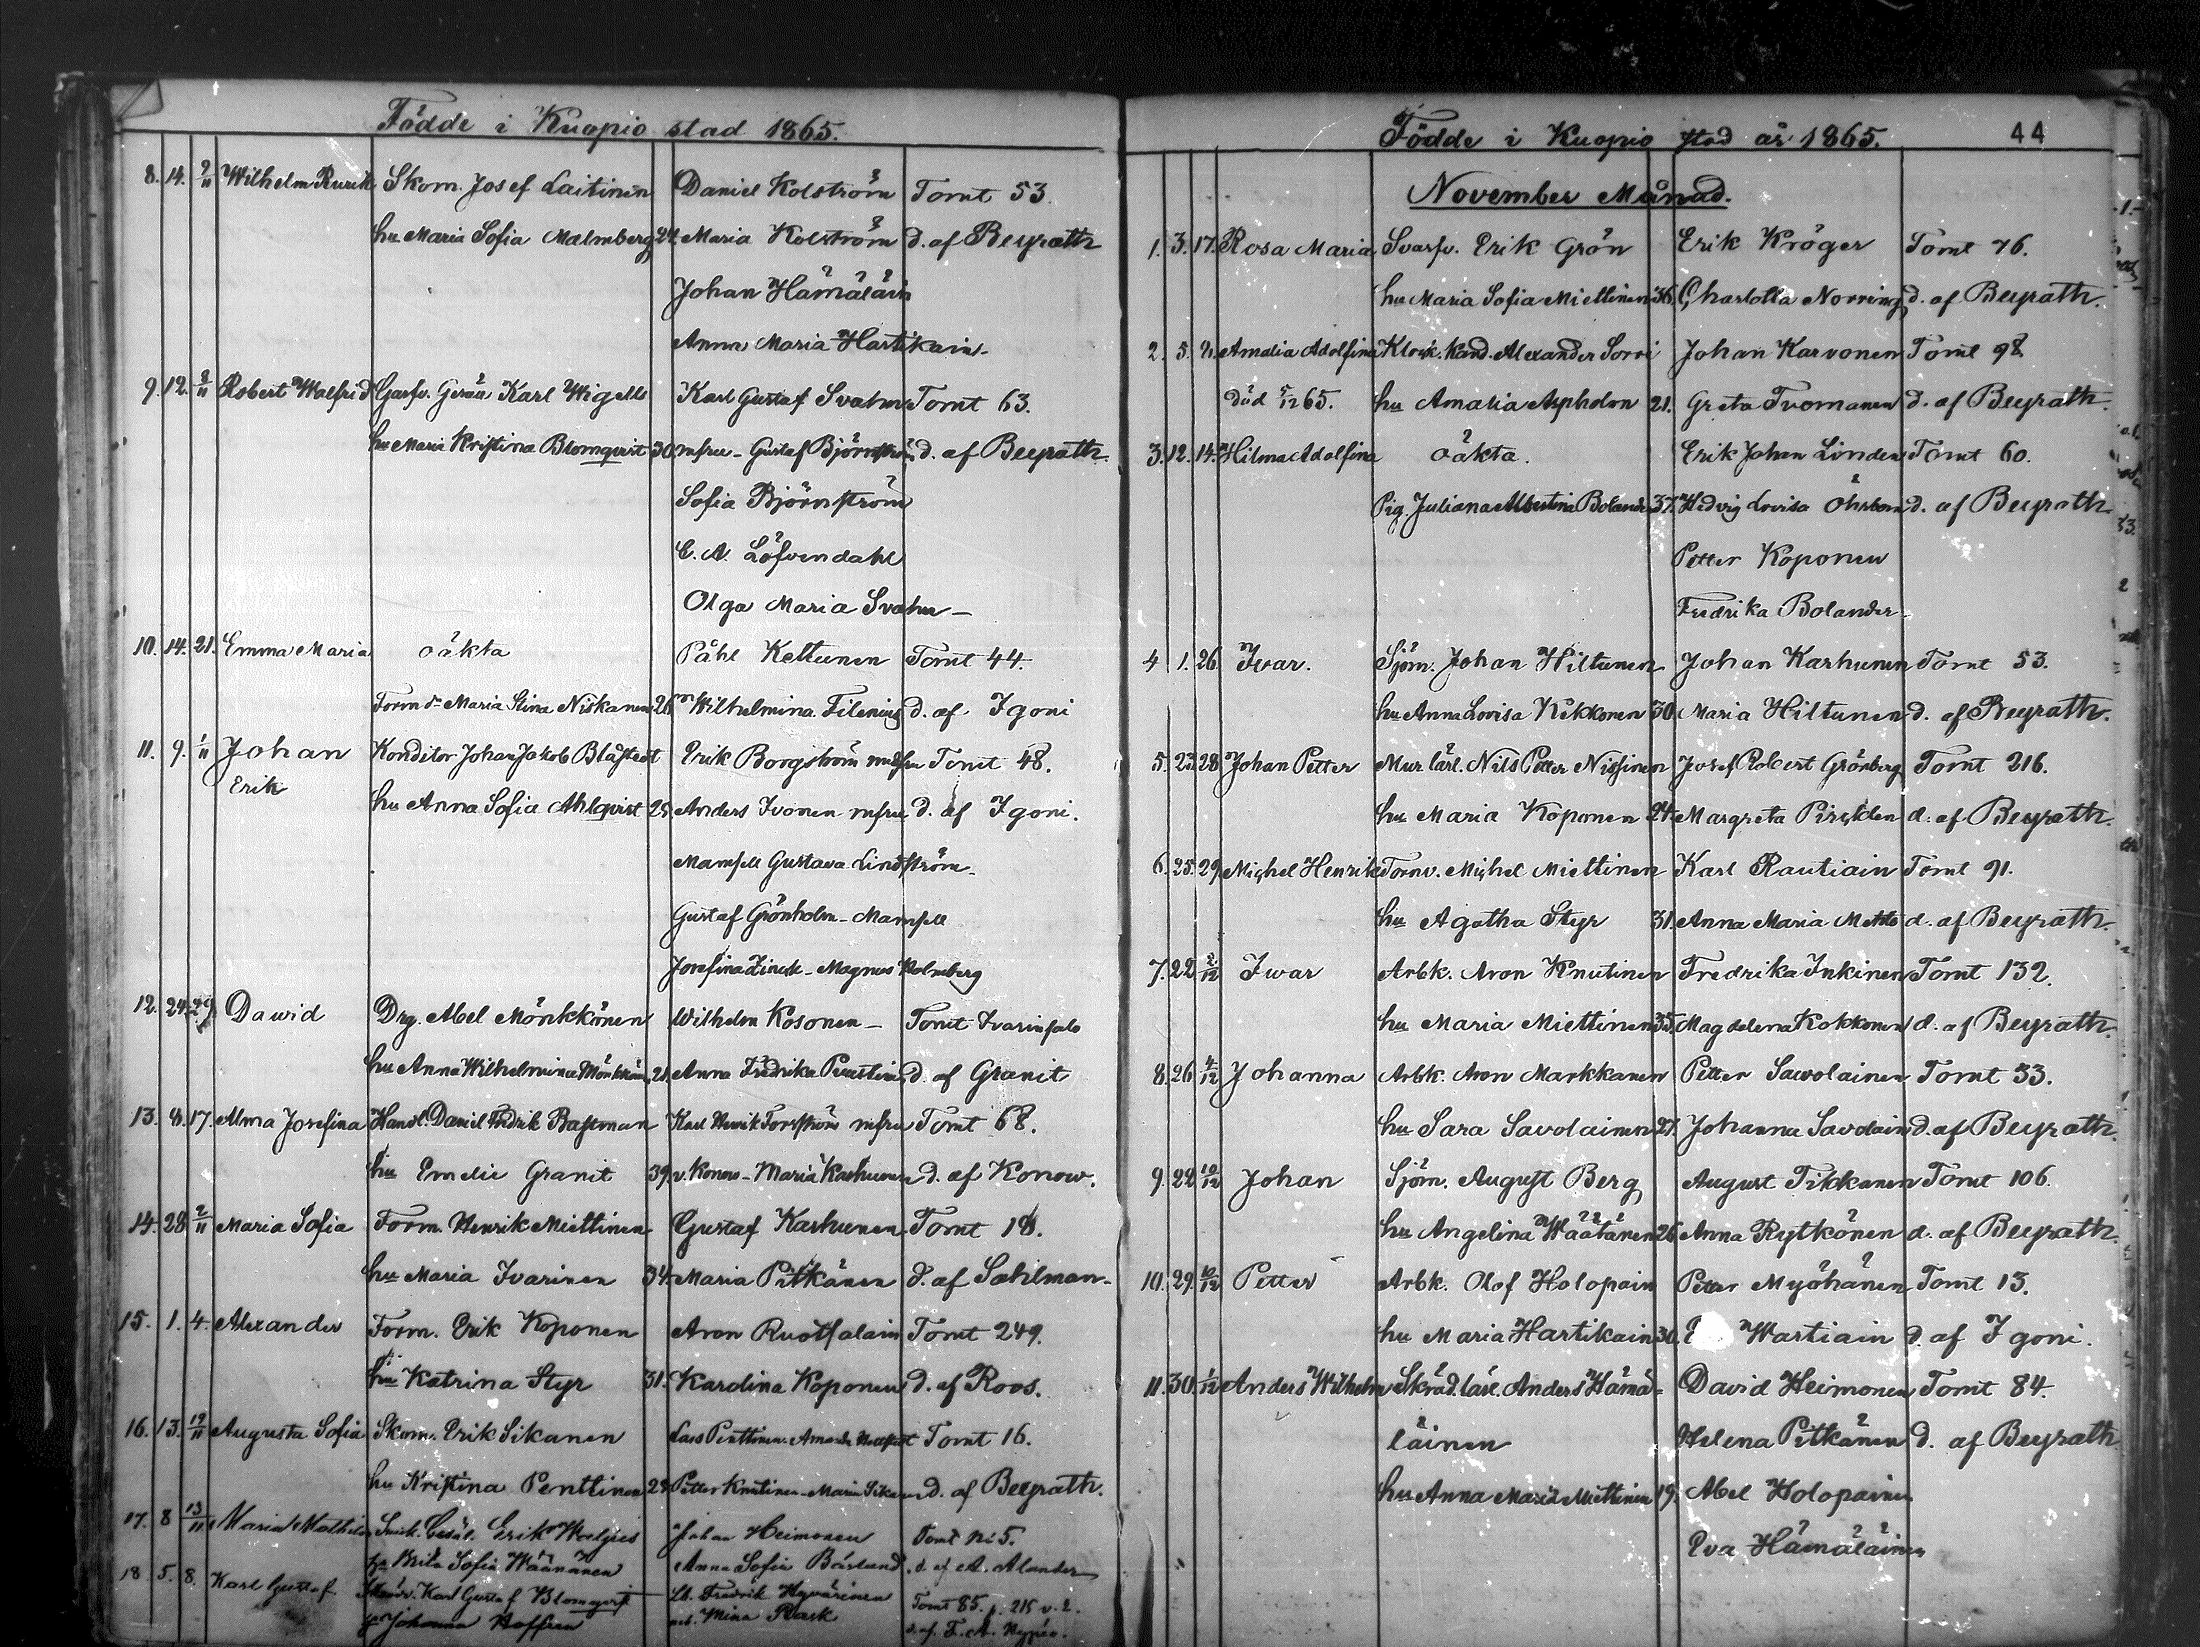 Födde i Kuopio stad 1865.
8. 14. 2/11 Wilhelm Rurik Skom. Josef Laitinen Daniel Kolström Tomt 53.
hu Maria Sofia Malmberg 24. Maria Kolström d. af Beyrath
Johan Hämäläin
Anna Maria Hartikain
9. 12. 2/11 Robert Walfrid Garfv. Karl Wigell Karl Gustaf Svahn Tomt 63.
hu Maria Kristina Blomqvist 30. mfru - Gustaf Björnström d. af Beyrath.
Sofia Björnström
C. A. Löfvendahl
Olga Maria Svahn
10. 14. 21. Emma Maria oäkta Påhl Kettunen Tomt 44
Form d. Maria Stina Niskanen 26. Wilhelmina Filenius d. af Igoni
11. 9. 1/11 Johan Konditor Johan Jakob Blåstedt Erik Borgström mfru Tomt 48.
Erik
hu Anna Sofia Ahlqvist 25. Anders Ivonen mfru d. af Igoni.
Mamsell Gustava Lindström
Gustaf Grönholm - Mamsell
Josefina Zinck - Magnus Holmberg
12. 24. 29. Dawid Drg. Abel Mönkkönen Wilhelm Kosonen Tomt
hu Anna Wilhelmina Mönkkönen 21. Anna Fredrika d. af Granit
13. 17. Alma Josefina Handl. Daniel Fredrik Bastman Karl Henrik Forsström mfru Tomt 68.
hu Emelie Granit 39. v. Konow - Maria Karhunen d. af Konow.
14. 28. 2/11 Maria Sofia Form. Henrik Miettinen Gustaf Karhunen Tomt 18.
hu Maria Ivarinen 34. Maria Pitkänen d. af Sahlman
15. 1. 4. Alexander Form. Erik Koponen Aron Ruotsalain Tomt 249.
hu Katrina Styr 31. Karolina Koponen d. af Roos.
16. 13. 19/11 Augusta Sofia Skom. Erik Sikanen Lars Penttinen Tomt 16.
hu Kristina Penttinen 29. Petter Knutinen - Maria Sikan d. af Beyrath.
17. 8 13/11 Maria Mathilda Erik Johan Heimonen Tomt No 5.
hu Brita Sofia Wäänänen Anna Sofia Båslund d. af A. Alander
18 5. 8. Karl Gustaf Karl Gustaf Blomqvist Fredrik Hyvärinen Tomt 85. p. 215 v. 2.
hu Johanna Hoffren Mina Rask d. af F. A.
Födde i Kuopio stad år 1865. 44
November Månad.
1. 3. 17. Rosa Maria Svarfv. Erik Grön Erik Kröger Tomt 76.
hu Maria Sofia Miettinen 36. Charlotta Norring d. af Beyrath.
2. 5. Amalia Adolfina Klock. Kand. Alexander Sorri Johan Karvonen Tomt 98
Död 5/12 65. hu Amalia Aspholm 21. Greta Tvomanen d. af Beyrath.
3. 12. 14. Hilma Adolfina oäkta. Erik Johan Linden Tomt 60.
Pig. Juliana Albertina Bolander 37. Hedvig Lovisa Öhrbom d. af Beyrath.
Petter Koponen
Fredrika Bolander
4 1. 26 Ivar. Sjöm. Johan Hiltunen Johan Karhunen Tomt 53.
hu Anna Lovisa Kokkonen 30. Maria Hiltunen d. af Beyrath.
5. 23. 28. Johan Petter Mur lärl. Nils Petter Nissinen Josef Robert Grönberg Tomt 216.
hu Maria Koponen 24. Margreta d. af Beyrath.
6. 25. 29. Michel Henrik Tornv. Michel Miettinen Karl Rautiain Tomt 91.
hu Agatha Styr 31. Anna Maria d. af Beyrath.
7. 22. 2/12 Iwar Arbk. Aron Knutinen Fredrika Inkinen Tomt 132.
hu Maria Miettinen 35. Magdelena Kokkonen d. af Beyrath.
8. 26 4/12 Johanna Arbk. Aron Markkanen Petter Sawolainen Tomt 33.
hu Sara Savolainen 27. Johanna Savolain d. af Beyrath.
9. 22 10/12 Johan Sjöm. August Berg August Tikkanen Tomt 106.
hu Angelina Wäätänen 26. Anna Rytkönen d. af Beyrath.
10. 29. 10/12 Petter Arbk. Olof Holopain Petter Myöhänen Tomt 13.
hu Maria Hartikain 30. Wartiain d. af Igoni.
11. 30. 1/12 Anders Wilhelm Skräd. lärl. Anders Hämä- David Heimonen Tomt 84
läinen Helena Pitkänen d. af Beyrath
hu Anna Maria Miettinen 19. Abel Holopainen
Eva Hämäläinen